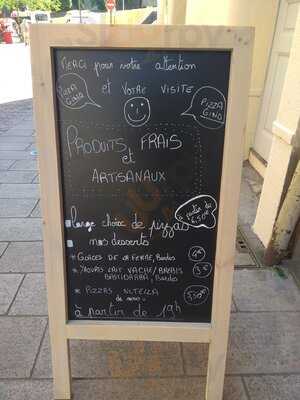 MERCI pour votre attention
et VOTRE VISITE
PIZZA
GINO
PIZZA
GINO
PRODUITS FRAIS
et
ARTSANAUX
large choix de pizzas
à partir de
6,50€
nos desserts
* GLACES DE LA FERME, Bardos
4€
* YAOURS LAIT VACHE/BREBIS
BASTIDARRA, Bardos
3€
* PIZZAS NUTELLA
3,50€
à partir de 19h